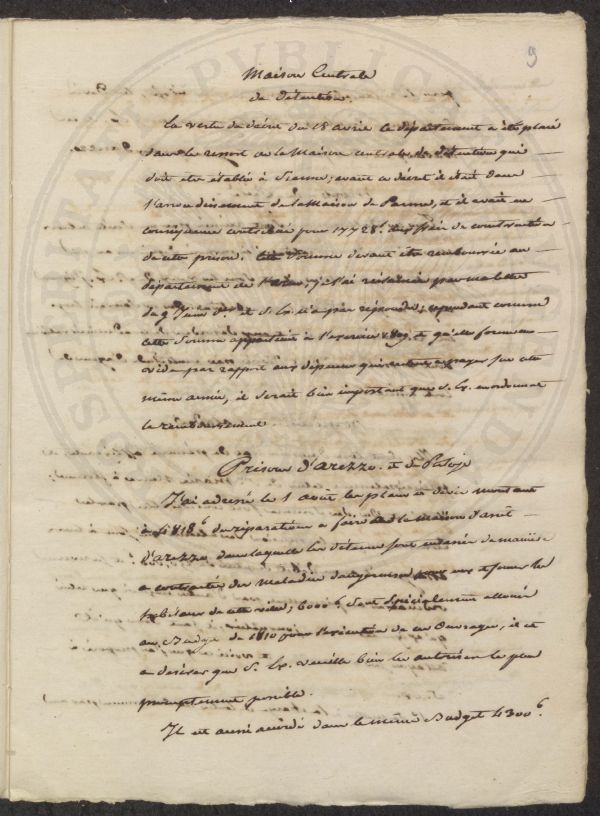 9
Maison Centrale
de détention.
En vertu du décret du 18 avril ce département a été placé
dans le ressort de la Maison centrale de détention qui
doit etre établie à Sienne; avant ce décret il était dans
l'arrondissement de la Maison de Parme, et il avait en
conséquence contribué pour 17728 f. aux frais de construction
de cette prison. Cette somme devant être remboursée au
département de l'Arno, je l'ai réclamée par ma lettre
du 9 Juin et S. Ex. n'a pas répondu; cependant comme
cette Somme appartient à l'exercice 1809 et qu'elle forme un
vide par rapport aux dépenses qui restent a payer sur cette
même année, il serait bien important que S. Ex. en ordonnat
le remboursement
Prisons d'Arezzo et de Pistoje
J'ai adressé le 1 Août les plans et devis montant
à 4818 f. de réparations a faire à la Maison d'arrêt
d'Arezzo dans laquelle les détenus sont entassés de manière
a contracter des Maladies dangereuses pour eux et pour les
habitans de cette ville; 6000 f. sont spécialement alloués
au Budget de 1810 pour l'exécution de ces Ouvrages, il est
a desirer que S. Ex. veuille bien les autoriser le plus
promptement possible.
Il est aussi accordé dans le même Budget 4300 f.